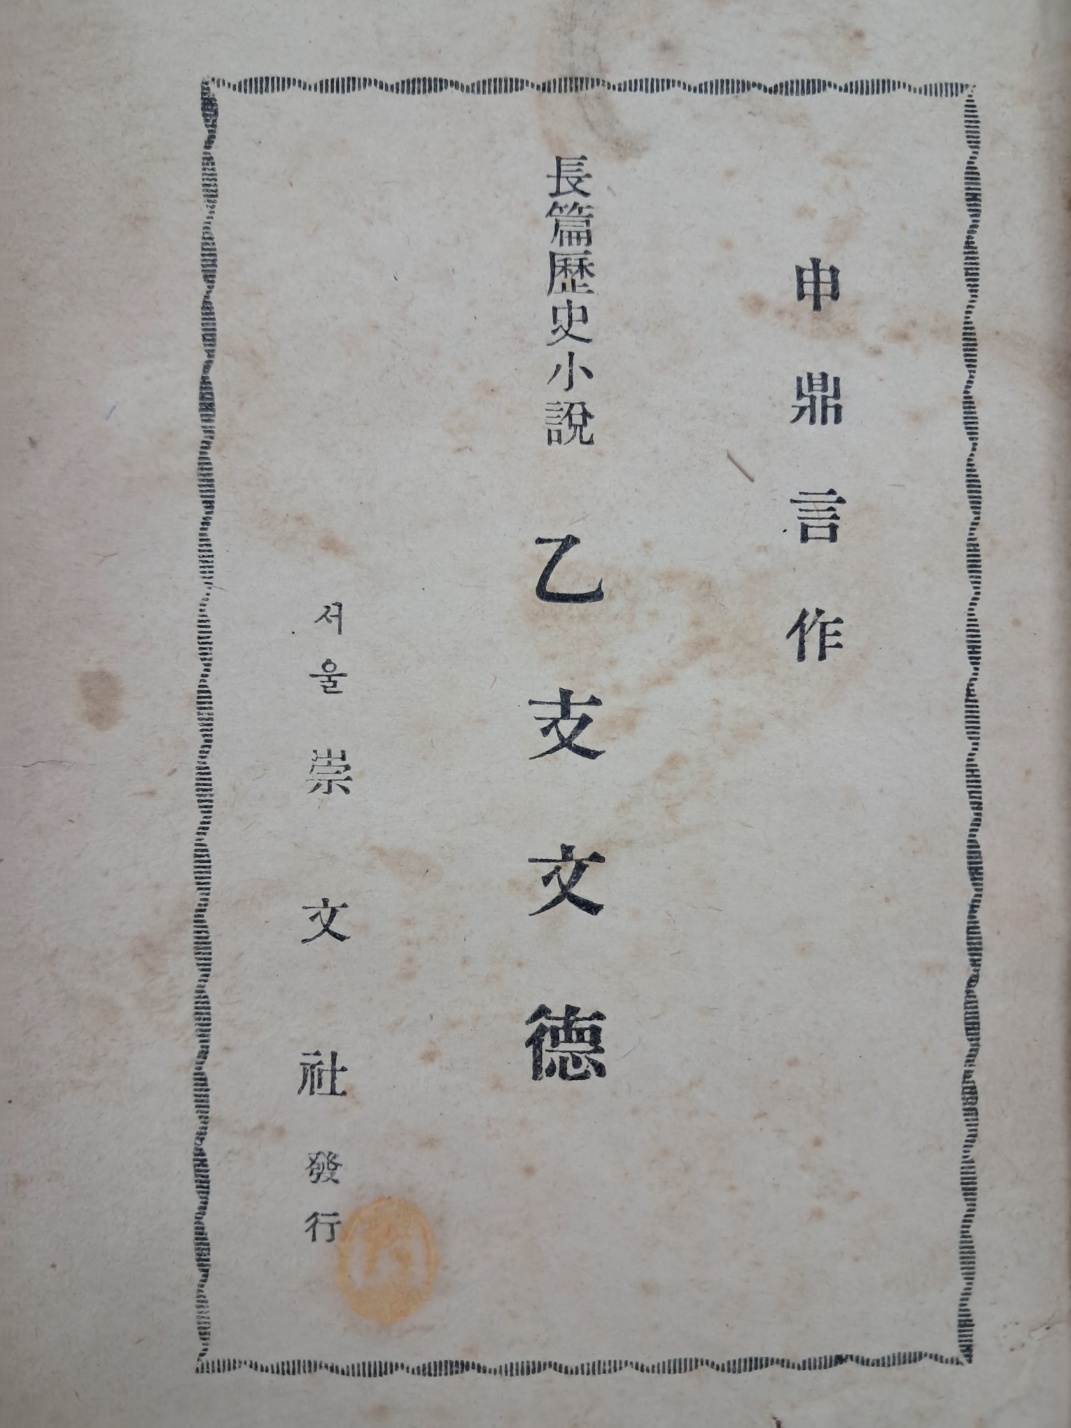 申鼎言作
長篇歷史小說 乙支文德
서울 崇文社 發行